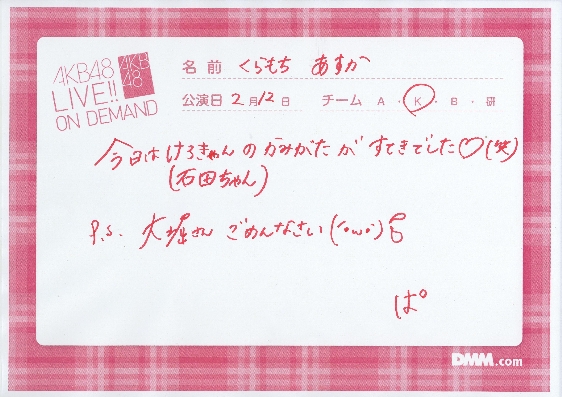 AKB48
LIVE!!
ON DEMAND
AKB
48
名前 くらもち あすか
公演日 2月12日 チーム A・K・B・研
今日は けろきゃん の かみがた が すてきでした♡(笑)
(石田ちゃん)
P.S. 大堀さん ごめんなさい(´・ω・`)
ぱ°
DMM.com